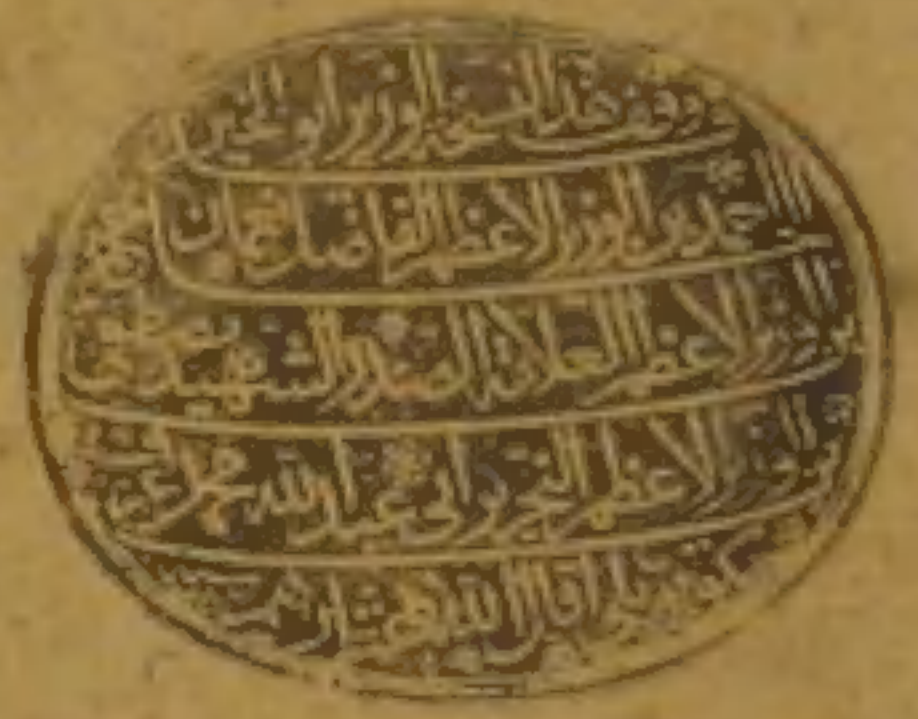 وقف هذه النسخة الوزير ابو الخير
احمد بن الوزير الاعظم الفاضل نعمان
بن الوزير الاعظم العلامة الصدر الشهيد مصطفى
بن الوزير الاعظم النحرير ابي عبد الله محمد عرف
اقال الله عثارهم